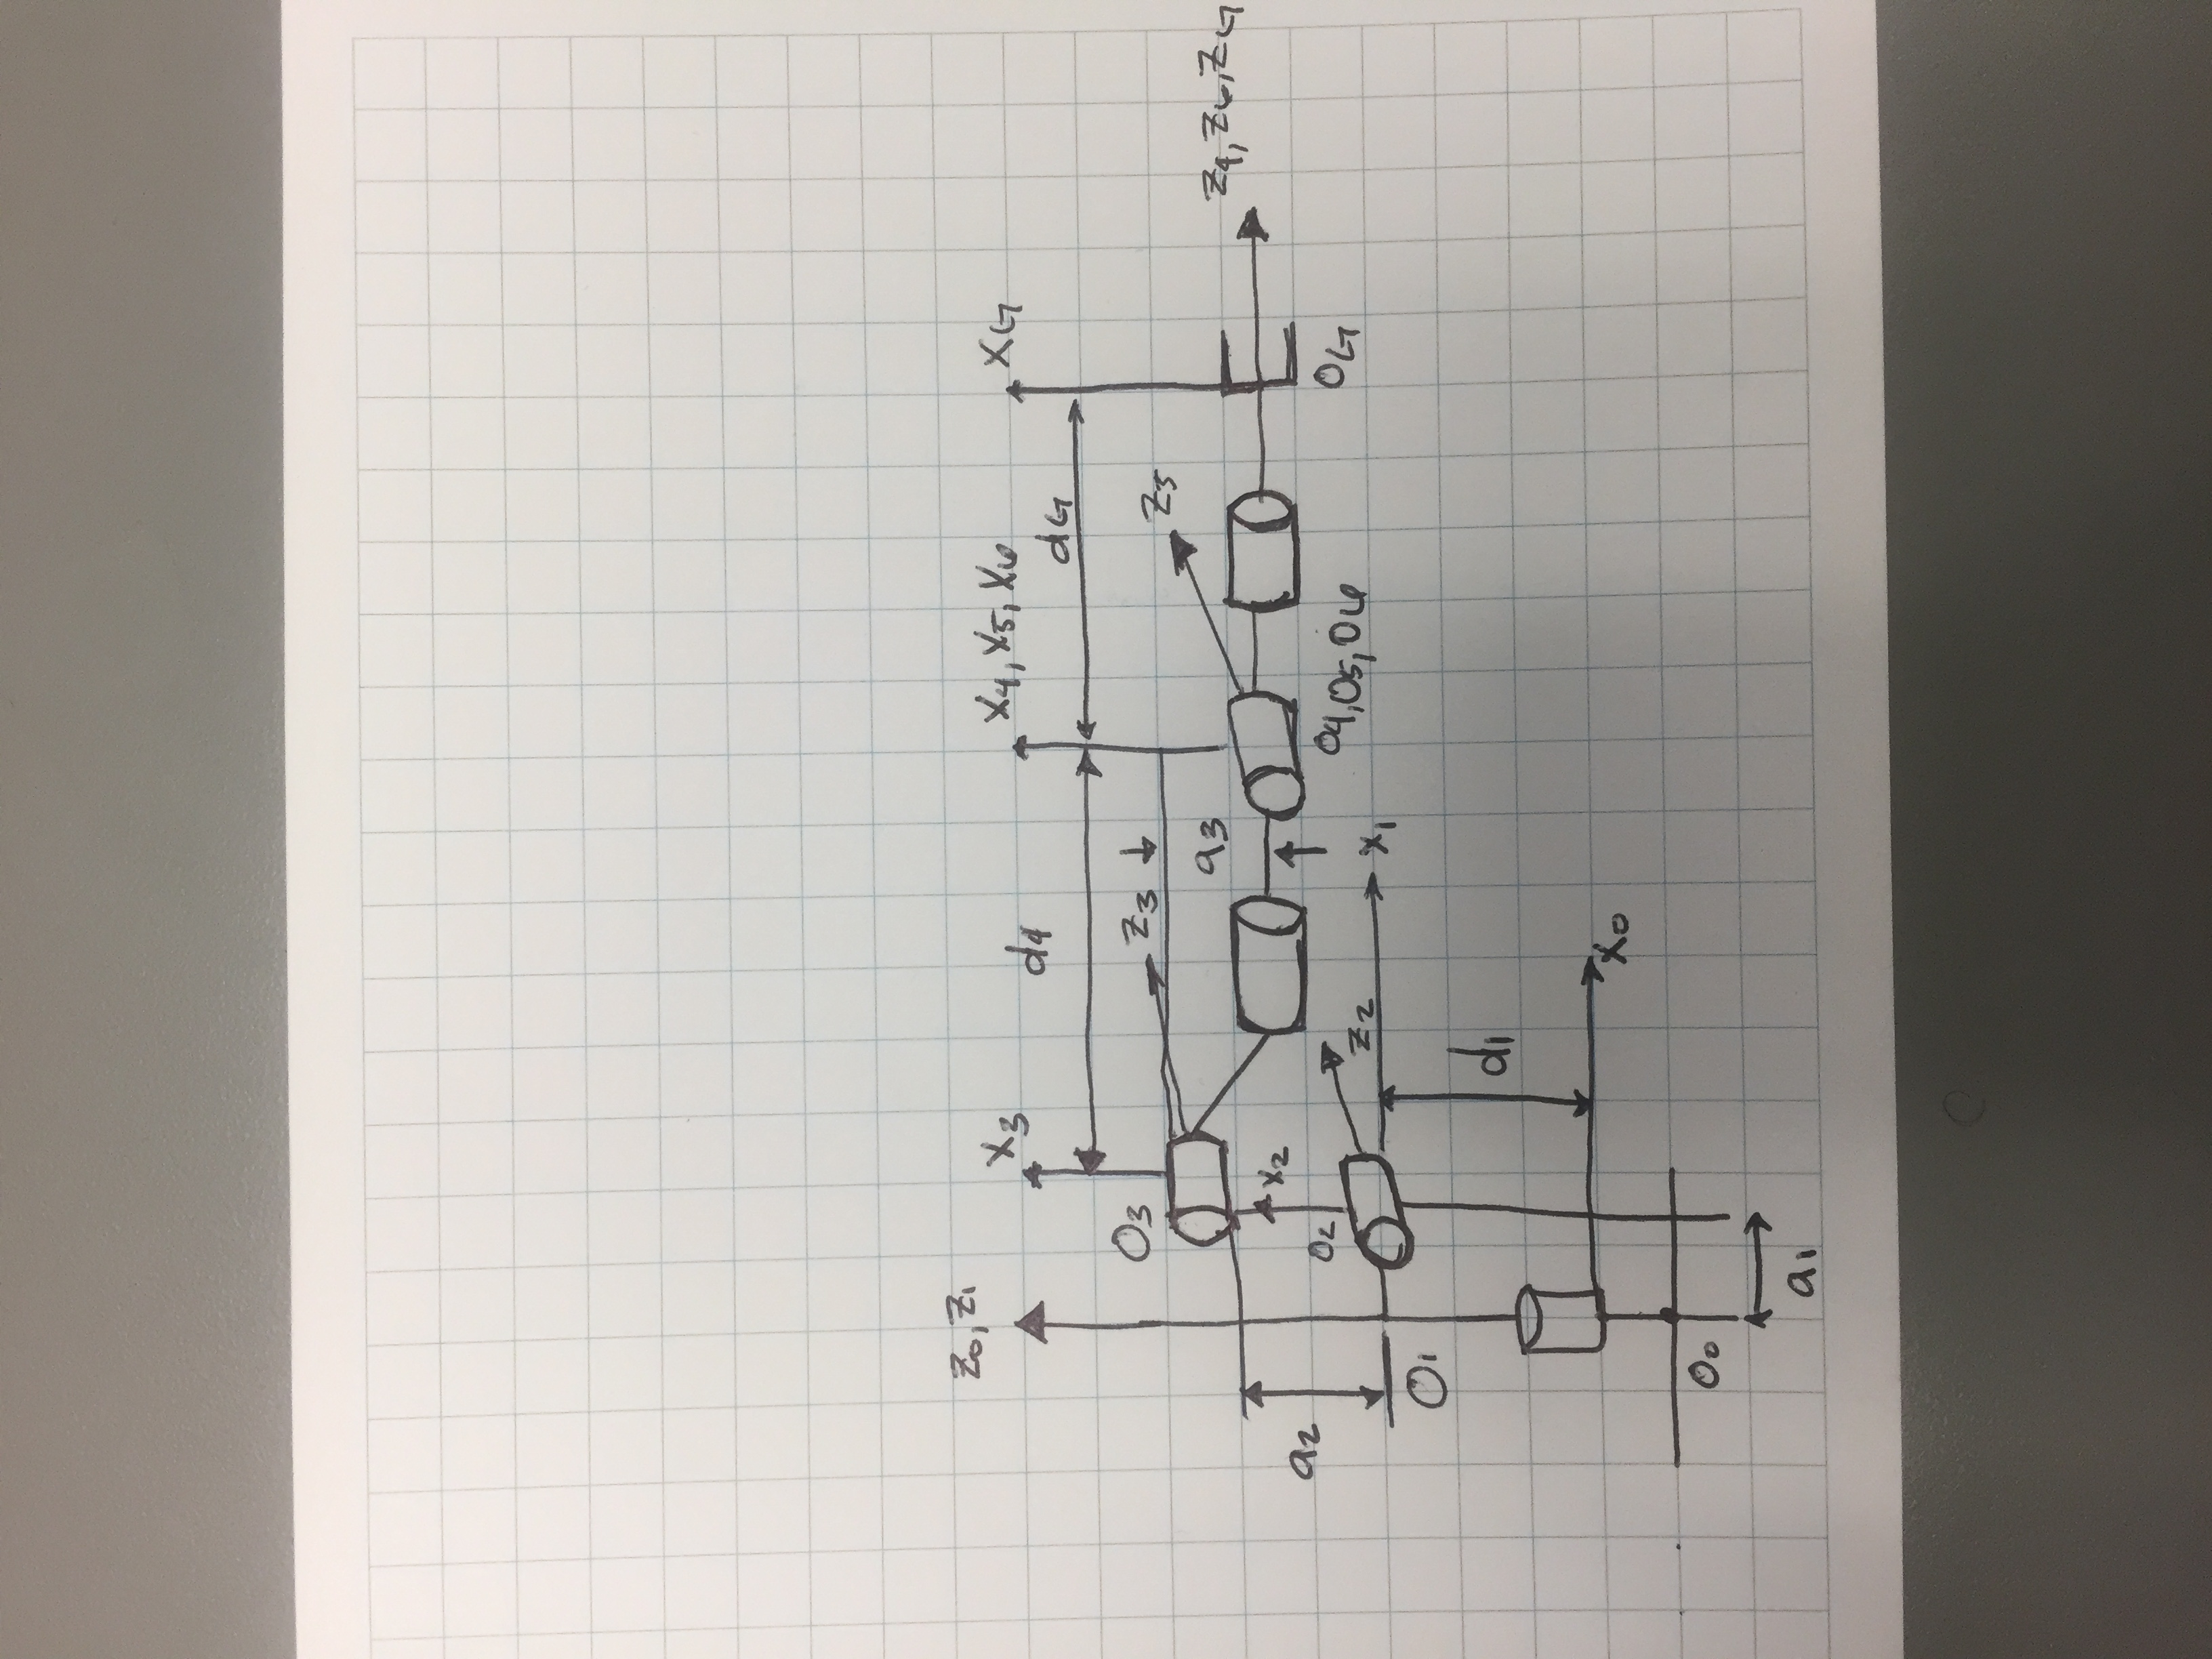 Z0, Z1
X3
X4, X5, X6
XG
d4
dG
O3
Z3
Z5
a3
Z4, Z6, ZG
a2
X2
O2
Z2
O4, O5, O6
OG
X1
O1
d1
X0
O0
a1